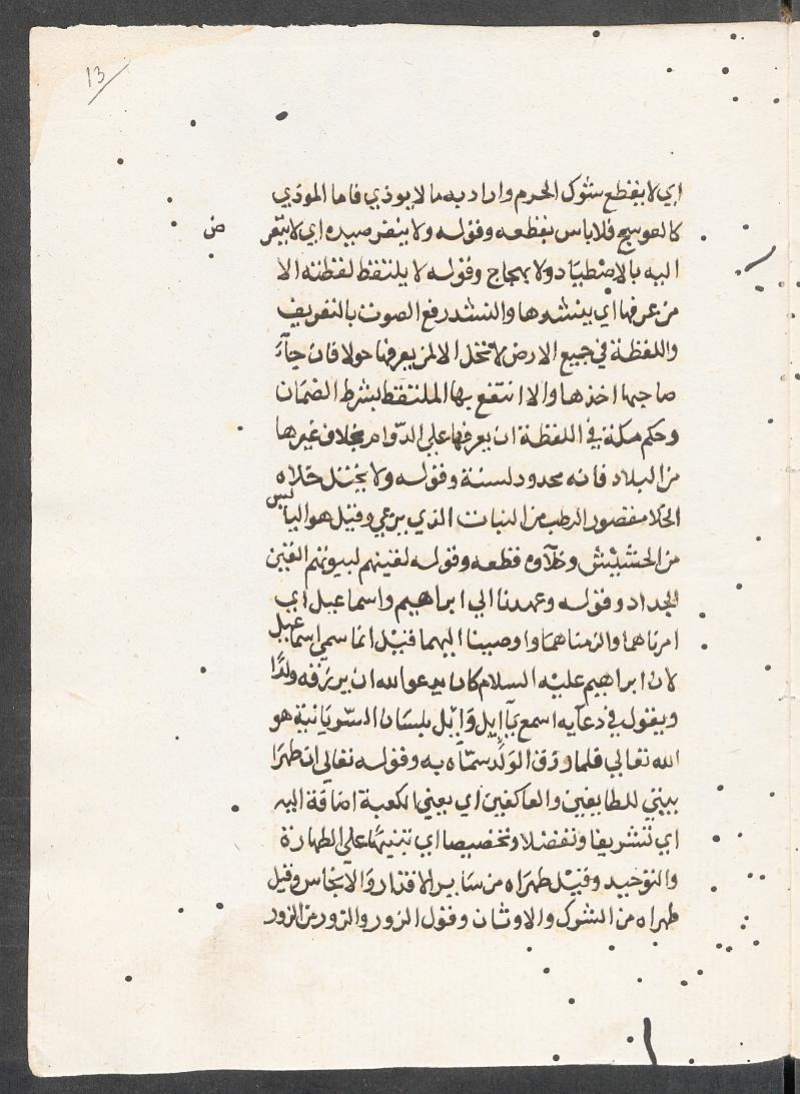 13
اي لا يقطع شوك الحرم واراد به ما لا يوذي فاما الموذي
كالعوسج فلا باس بقطعه وقوله ولا ينفر صيده اي لا يتعرض
اليه بالاصطياد ولا يهاج وقوله لا يلتقط لقطته الا
من عرفها اي ينشدها والنشد رفع الصوت بالتعريف
واللقطة في جميع الارض لا تحل الا لمن يعرفها حولا فان جآء
صاحبها اخذها والا انتفع بها الملتقط بشرط الضمان
وحكم مكة في اللقطة ان يعرفها علي الدوام بخلاف غيرها
من البلاد فانه محدود لسنة وقوله ولا يختل خلاه
الخلا مقصور الرطب من النبات الذي يرعي وقيل هو اليابس
من الحشيش وخلآوه قطعه وقوله لقينهم لبيوتهم القين
الحداد وقوله وعهدنا الي ابراهيم واسماعيل اي
امرناهما والزمناهما واوصينا اليهما قيل انما سمي اسماعيل
لان ابراهيم عليه السلام كان يدعو الله ان يرزقه ولدا
ويقول في دعآيه اسمع يآ ايل وايل بلسان السريانية هو
الله تعالي فلما ورق الولد سمآه به وقوله تعالي ان طهرا
بيتي للطايفين والعاكفين اي يعني الكعبة اضافة اليه
اي تشريفا وتفضلا وتخصيصا اي تبنيهما علي الطهارة
والتوحيد وقيل طهراه من ساير الاقذار والانجاس وقيل
طهراه من الشرك والاوثان وقول الزور والزور من الزور